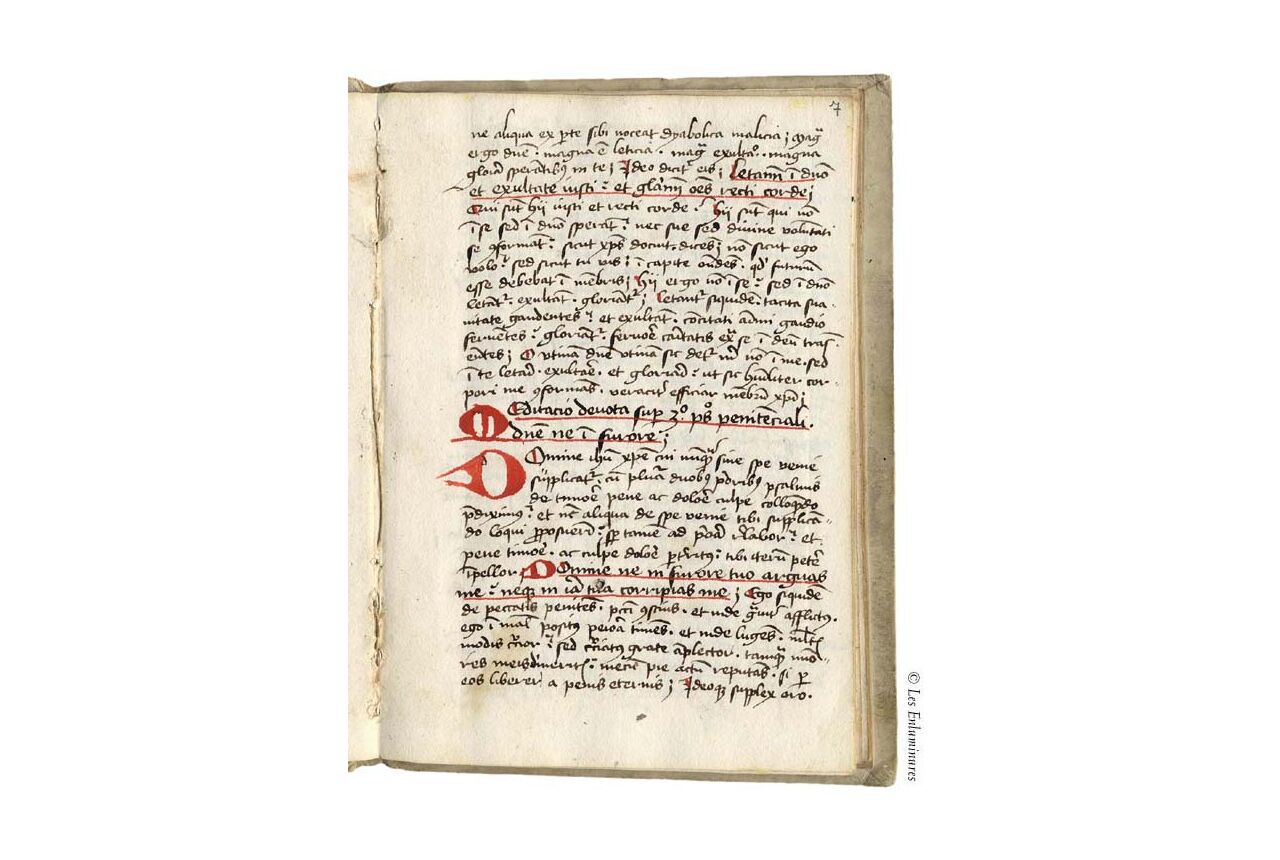 7
ne aliqua ex pte sibi noceat dyabolica malicia; mag
ergo dne. magna e leticia. mag exulto. magna
gloria sperantibus in te; Ideo dicit eis; Letamini i dno
et exultate iusti: et glamini oes recti corde;
Qui sut hij iusti et recti corde: hij sut qui no
i se sed i dno sperat: nec sue sed divine volutati
se 9format: sicut xps docuit. dices; non sicut ego
volo: sed sicut tu vis; i capite ondes. qd futurum
esse debebat i mebris; hij ergo no i se: sed i dno
letat. exultat. gloriat; letant siquide. tacita sua
vitate gaudentes: et exultat. cocitati animi gaudio
ferventes: gloriat. fervore caritatis ex se i deu tras
entes; O vtina dne vtina sic det m no i me. sed
i te letari. exultare. et gloriari: ut sic humiliter cor
pori me 9formas. veracit efficiar mebru xpi;
Meditacio devota sup 3o ps penitenciali.
dne ne i furore;
Domine ihu xpe cui nuq sine spe venie
supplicat. cu plura duobus pdribus psalmis
de timore pene ac dolore culpe colloquedo
pdixim9: et nc aliqua de spe venie tibi supplica
do loqui pposueri: tamen ad labor: et
pene timore. ac culpe dolore ptritus: tibi iteru petere
ipellor. Domine ne in furore tuo arguas
me: neq in ira tua corripias me; Ego siquide
de peccatis penites. pcti 9scius. et inde gvit afflictus.
ego i mal positus peiora times. et inde luges. mlt
modis crucior: sed cruciatus grate aplector. tamq
pie actu reputas. si p
eos liberer a penis eternis; Ideoq supplex oro.
© Les Enluminures